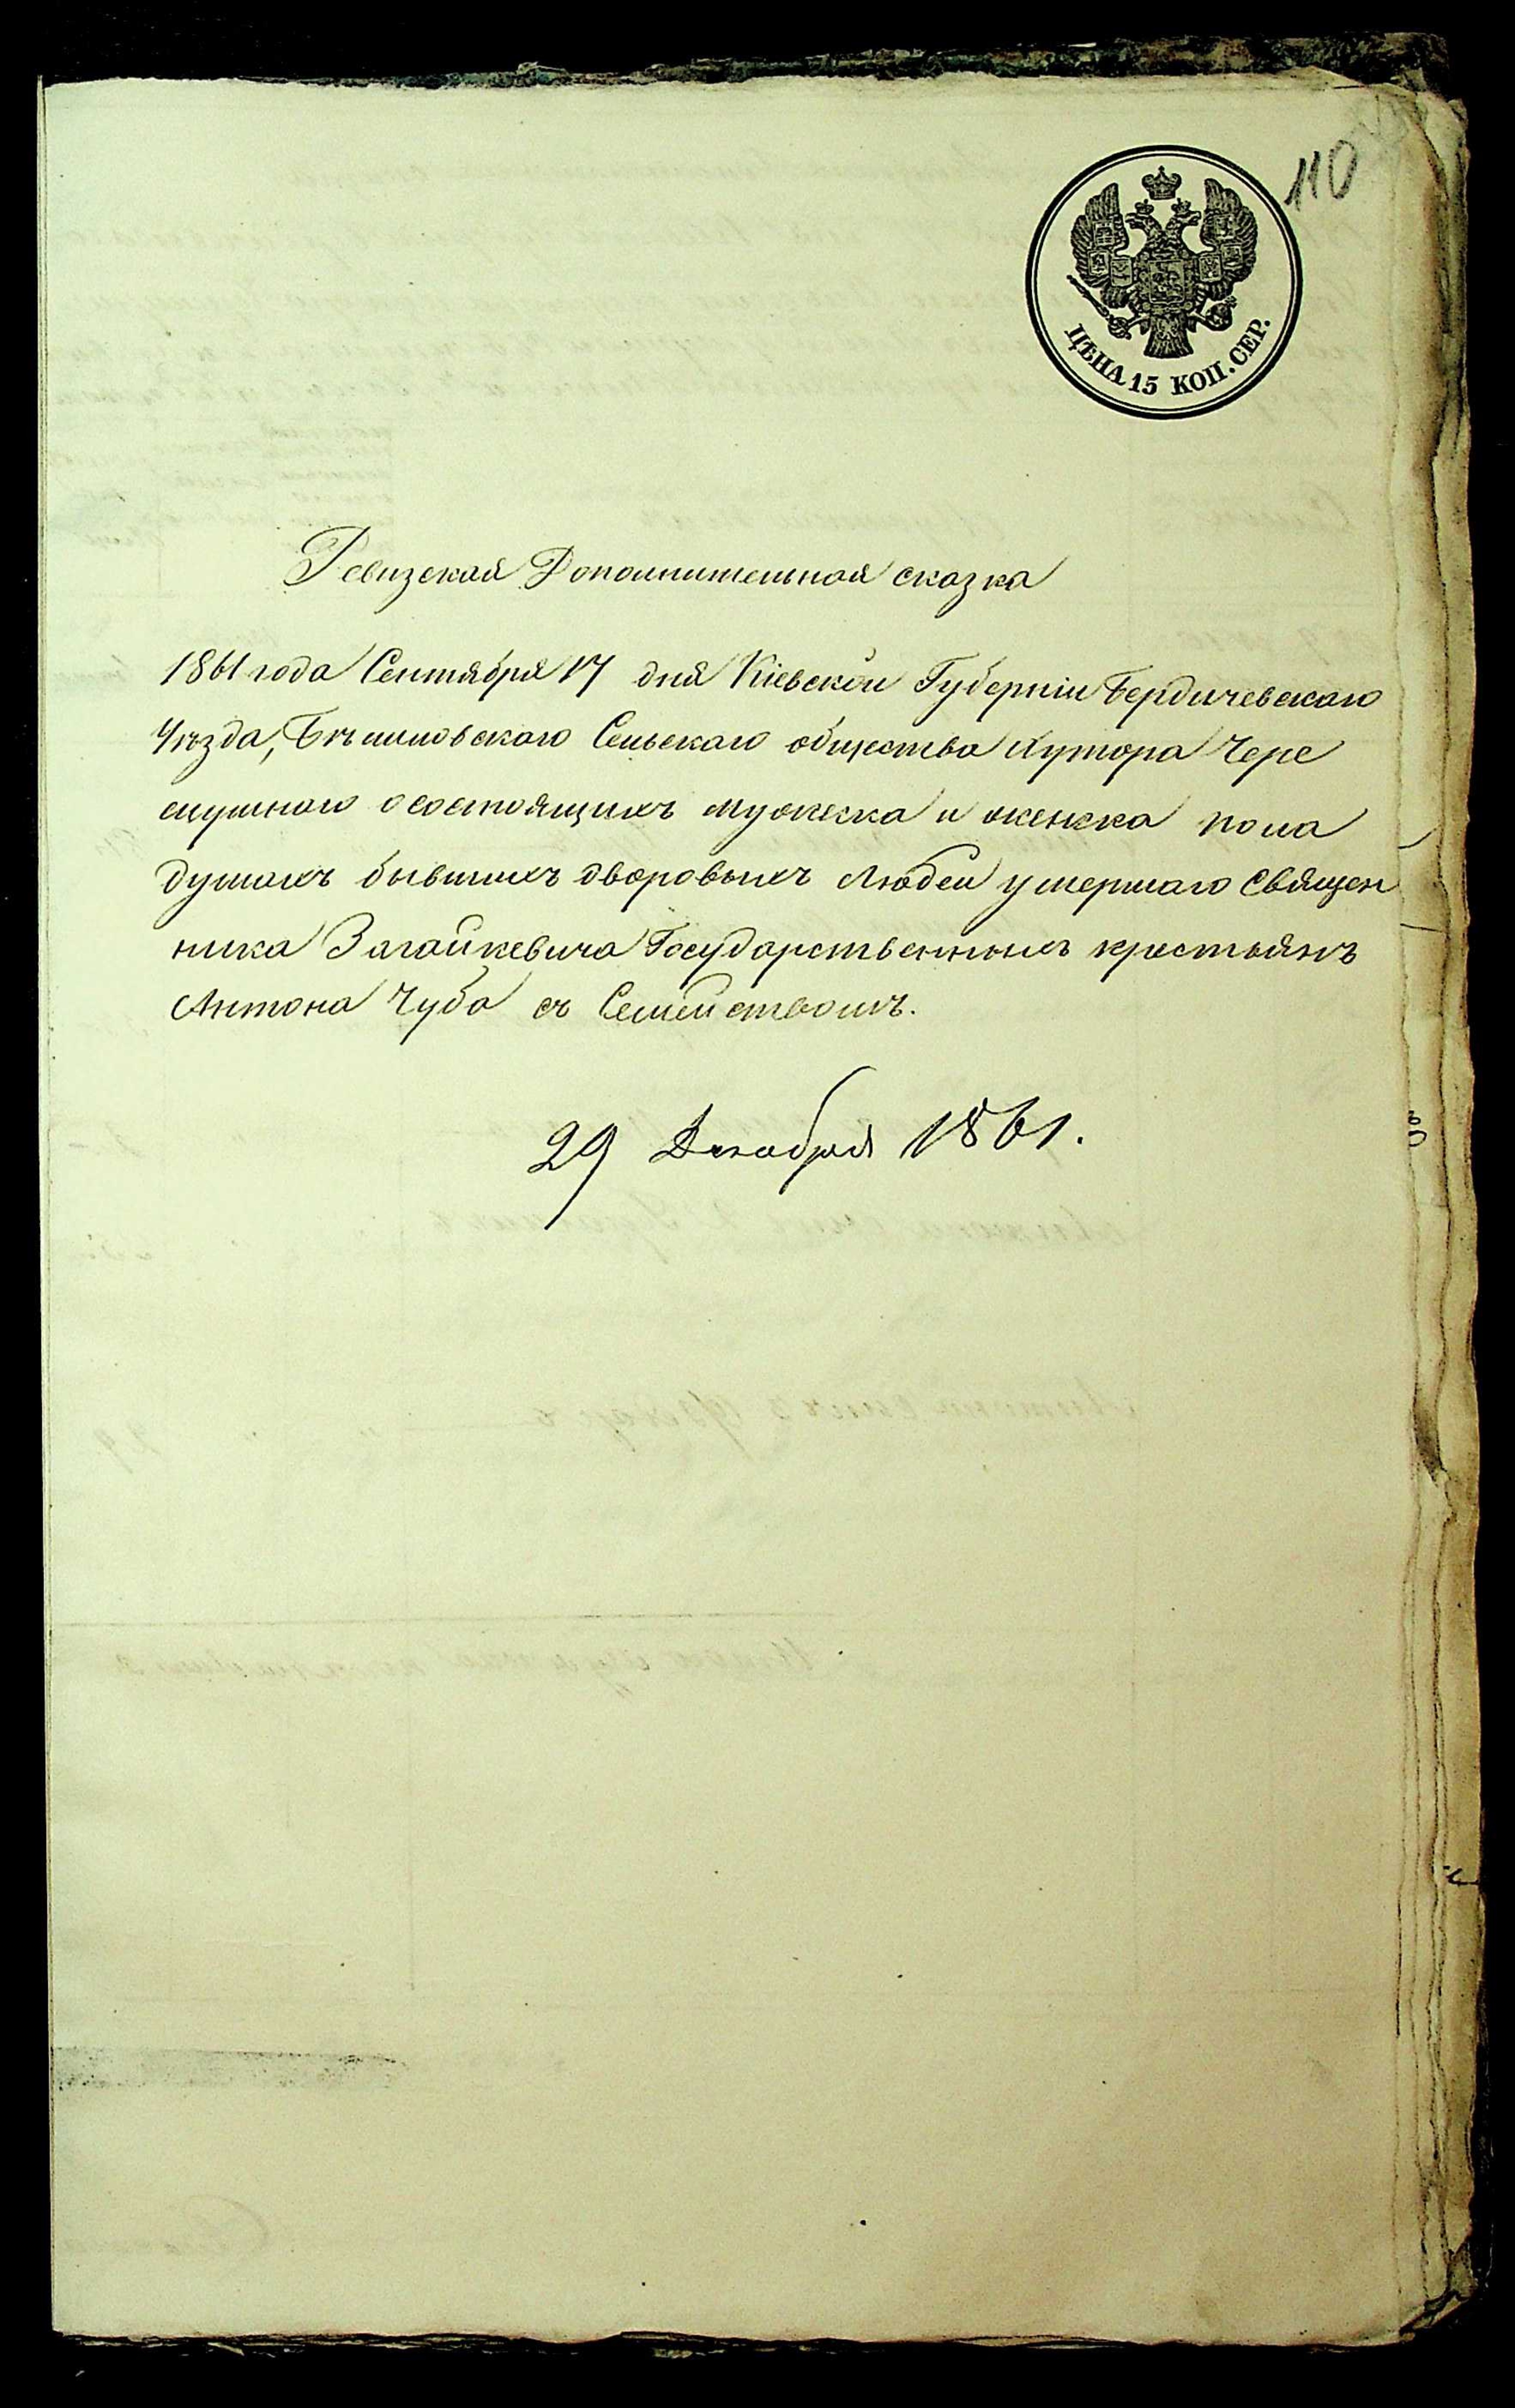 110
ЦѢНА 15 КОП. СЕР.
Ревизская Дополнительная сказка
1861 года Сентября 17 дня Кіевской Губерніи Бердичевскаго
Уѣзда, Сельскаго общества Хутора Чере
мушнаго о состоящихъ мужеска и женска пола
душахъ бывшихъ дворовыхъ Людей умершаго Священ
ника Загайкевича Государственныхъ крестьянъ
Антона Чуба съ Семействомъ.
29 Декабря 1861.